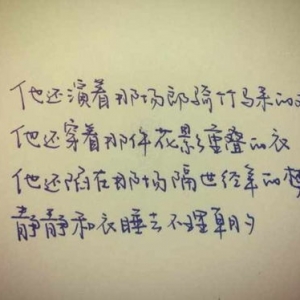 他还演着那场郎骑竹马来的
他还穿着那件花影重叠的衣
他还陷在那场隔世经年的梦
静静和衣睡去不理朝夕